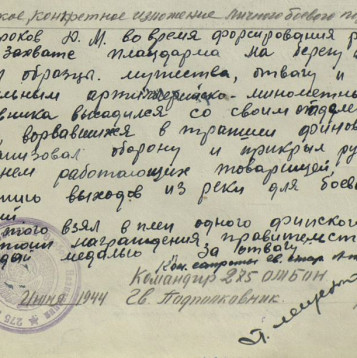 кое, конкретное изложение личного боевого по
роков Ю. М. во время форсирования р
захвате плацдарма на берегу
л образцы мужества, отвагу и
льным артиллерийско-минометны
вника высадился со своим отделе
, ворвавшихся в траншеи финов
анизовал оборону и прикрыл ру
нем работающих товарищей,
выходов из реки для боев
ий
того взял в плен одного финского
стоин награждения правительст
дой медалью За отвагу
Командир 275 ОМБОН
Гв. Подполковник
июля 1944
275